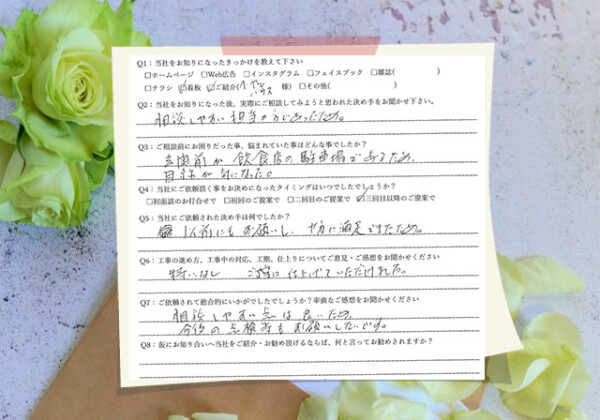 Q1：当社をお知りになったきっかけを教えて下さい
□ホームページ □Web広告 □インスタグラム □フェイスブック □雑誌( )
□チラシ ☑看板 ☑ご紹介( ハウス 様) □その他( )
Q2：当社をお知りになった後、実際にご相談してみようと思われた決め手をお聞かせ下さい。
相談しやすい担当の方であったため。
Q3：ご相談前にお困りだった事、悩まれていた事はどんな事でしたか？
玄関前が飲食店の駐車場であるため、
目線が気になった。
Q4：当社にご依頼頂く事をお決めになったタイミングはいつでしたでしょうか？
□初面談のお打合せで □初回のご提案で □二回目のご提案で ☑三回目以降のご提案で
Q5：当社にご依頼された決め手は何でしたか？
以前にもお願いし、 に満足できたため。
Q6：工事の進め方、工事中の対応、工期、仕上りについてご意見・ご感想をお聞かせください
特になし 丁寧に仕上げていただけました。
Q7：ご依頼されて総合的にいかがでしたでしょうか？率直なご感想をお聞かせください
相談しやすい点は良いため、
今後の点検等もお願いしたいです。
Q8：仮にお知り合いへ当社をご紹介・お勧め頂けるならば、何と言ってお勧めされますか？